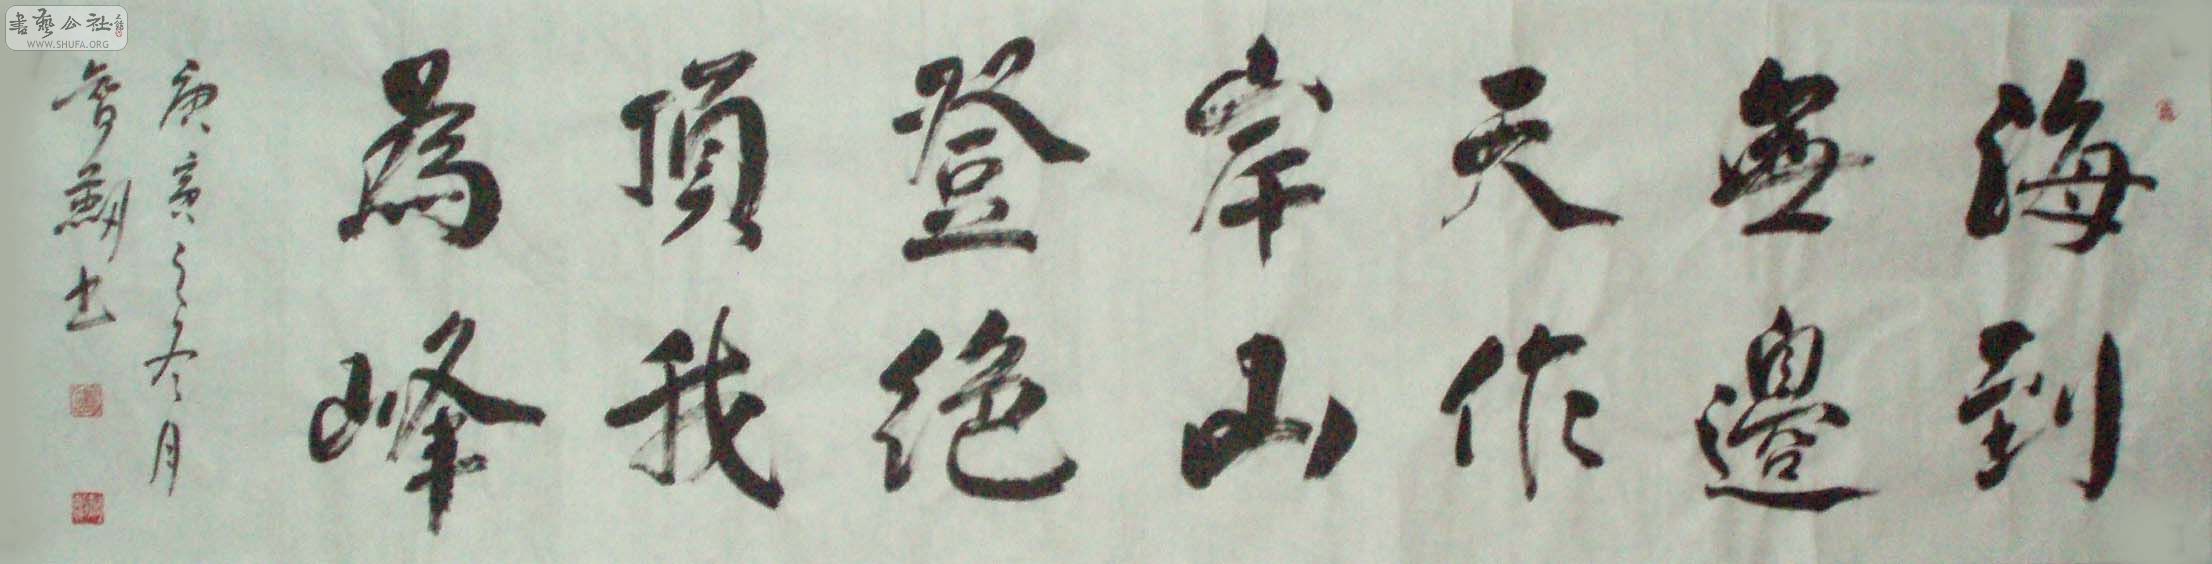 海到
無邊
天作
岸山
登绝
頂我
為峰
庚寅之冬月
书
書藝公社
WWW.SHUFA.ORG